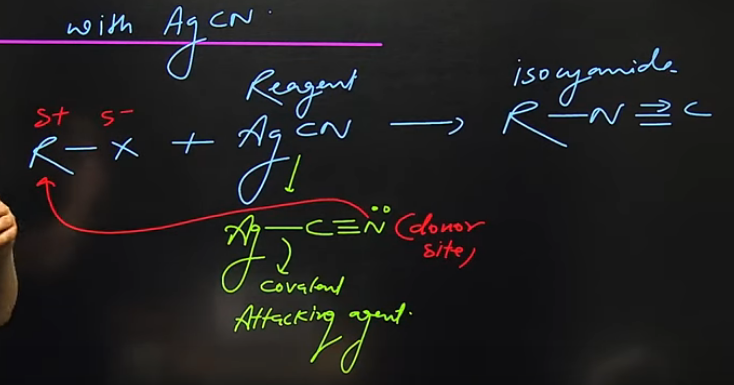 with AgCN.
Reagent
isocyanide
δ+ δ-
R-X + AgCN → R-N≡C
Ag-C≡N̈ (donor site)
covalent
Attacking agent.